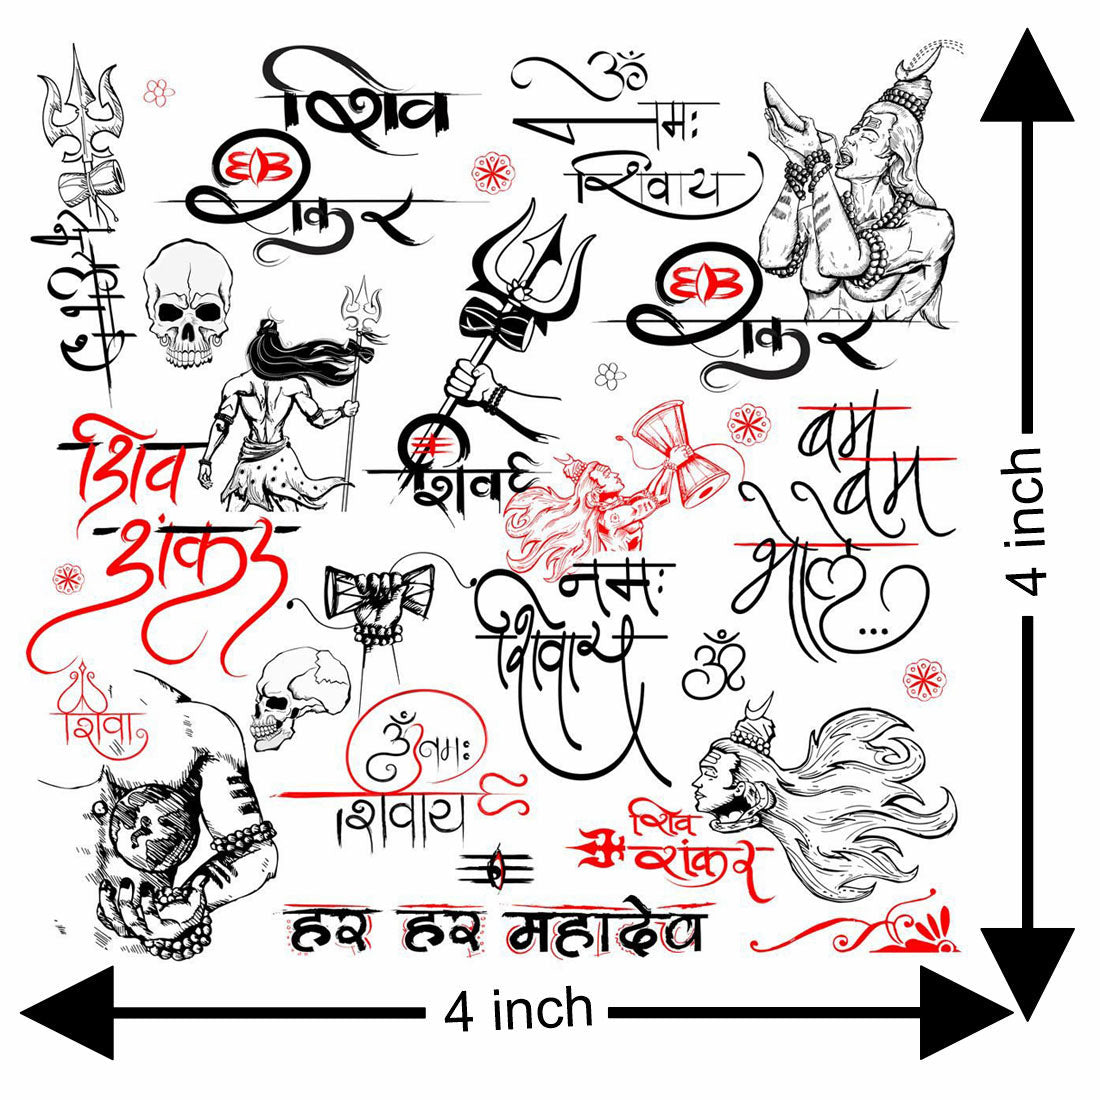 शिव
शंकर
ॐ
नमः
शिवाय
शंकर
शिव
शंकर
शिव
बम
बम
भोले...
नमः
शिवाय
ॐ
शिवा
ॐ नमः
शिवाय
शिव
शंकर
हर हर महादेव
4 inch
4 inch